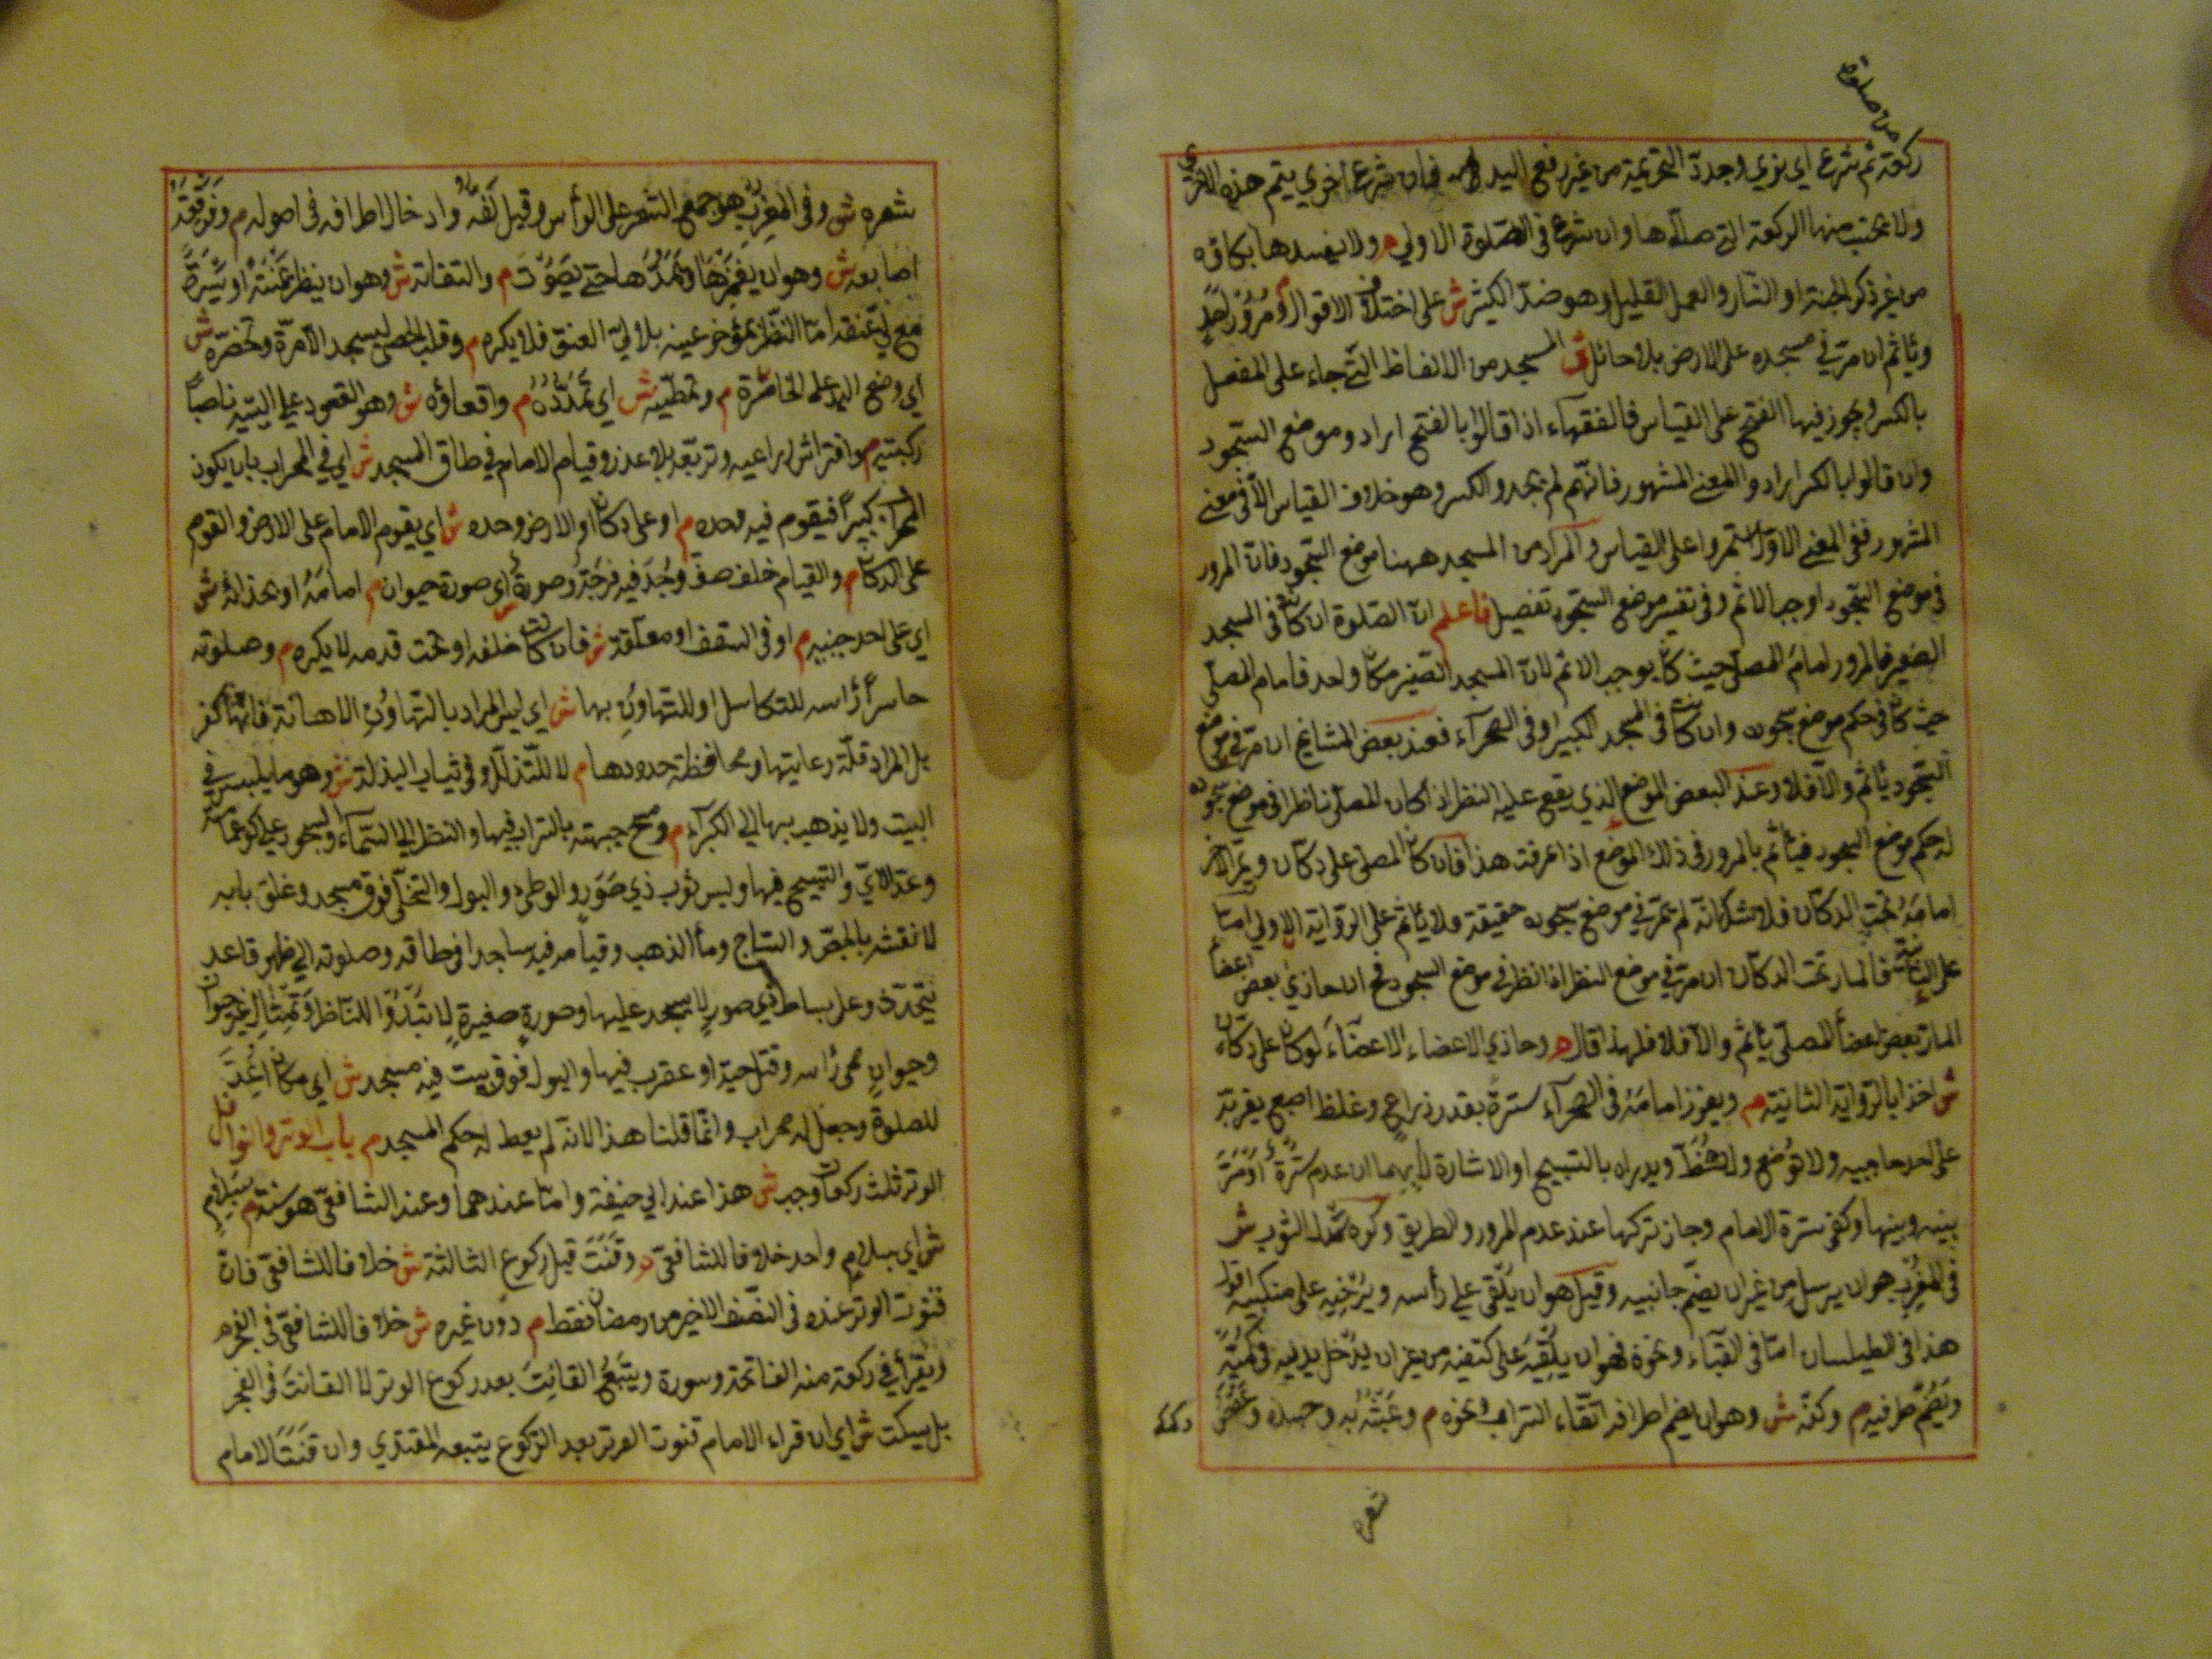 من صلوة
ركعة ثم شرع اي نوي وجدد التحريمة من غير رفع اليد فان شرع في اخري يتم هذه الاخري
ولا يحتسب منها الركعة التي صلاها وان شرع في الصلوة الاولي م ولا يفسدها بكاؤه
من غير ذكر الجنة او النار والعمل القليل وهو ضد الكثير ش على اختلاف الاقوال م ومرور احد
ويأثم ان مر في مسجده على الارض بلا حائل ش المسجد من الالفاظ التي جاء على المفعل
بالكسر ويجوز فيها الفتح على القياس فالفقهاء اذا قالوا بالفتح ارادوا موضع السجود
وان قالوا بالكسر ارادوا المعني المشهور فانهم لم يجدوا الكسر وهو خلاف القياس الا في معني
المشهور ففي المعني الاول استمروا على القياس والمراد من المسجد ههنا موضع السجود فان المرور
في موضع السجود اوجب الاثم وفي تفسير موضع السجود تفصيل فاعلم ان الصلوة ان كانت في المسجد
الصغير فالمرور امام المصلي حيث كان يوجب الاثم لان المسجد الصغير مكان واحد فامام المصلي
حيث كان في حكم موضع سجوده وان كانت في المسجد الكبير او في الصحراء فعند بعض المشايخ ان مر في موضع
السجود يأثم والا فلا وعند البعض الموضع الذي يقع عليه النظر اذا كان المصلي ناظرا في موضع سجوده
له حكم موضع السجود فيأثم بالمرور في ذلك الموضع اذا عرفت هذا فان كان المصلي على دكان ويمر الاخر
امامه تحت الدكان فلا شك انه لم يمر في موضع سجوده حقيقة فلا يأثم على الرواية الاولي اما
على الثانية فالمار تحت الدكان ان مر في موضع النظر اذا نظر في موضع السجود فح ان حاذي بعض اعضاء
المار بعض اعضاء المصلي يأثم والا فلا فلهذا قال م وحاذي الاعضاء الاعضاء لو كان على دكان
ش اخذا بالرواية الثانية م ويغرز امامه في الصحراء سترة بقدر ذراع وغلظ اصبع بقربه
على احد حاجبيه ولا توضع ولا يخط ويدرأه بالتسبيح او الاشارة لا بهما ان عدم سترة او مر
بينه وبينها وكفي سترة الامام وجاز تركها عند عدم المرور والطريق وكره سدل الثوب ش
في المغرب هو ان يرسل من غير ان يضم جانبيه وقيل هو ان يلقي على رأسه ويرخيه على منكبيه اقول
هذا في الطيلسان اما في القباء ونحوه فهو ان يلقيه على كتفيه من غير ان يدخل يديه في كميه
ويضم طرفيه م وكفه ش وهو ان يضم اطرافه اتقاء التراب ونحوه م وعبثه به وجسده وعقص
شعره
شعره ش وفي المغرب هو جمع الشعر على الرأس وقيل لفه وادخال اطرافه في اصوله م وفرقعة
اصابعه ش وهو ان يغمزها ويمدها حتي يصوت م والتفاته ش وهو ان ينظر يمنة او يسرة
مع لي عنقه اما النظر بمؤخر عينه بلا لي العنق فلا يكره م وقلب الحصي ليسجد الا مرة وتخصره ش
اي وضع اليد على الخاصرة م وتمطيه ش اي تمدده م واقعاؤه ش وهو القعود على اليتيه ناصبا
ركبتيه م وافتراش ذراعيه وتربعه بلا عذر وقيام الامام في طاق المسجد ش اي في المحراب بان يكون
المحراب كبيرا فيقوم فيه وحده م او على دكان او الارض وحده ش اي يقوم الامام على الارض والقوم
على الدكان م والقيام خلف صف وجد فيه فرجة وصورة اي صورة حيوان م امامه او بحذائه ش
اي على احد جنبيه م او في السقف او معلقة ش فان كانت خلفه او تحت قدمه لا يكره م وصلوته
حاسرا رأسه للتكاسل او للتهاون بها ش اي ليس المراد بالتهاون الاهانة فانها كفر
بل المراد قلة رعايتها ومحافظة حدودها م لا للتذلل وفي ثياب البذلة ش وهو ما يلبس في
البيت ولا يذهب بها الي الكبراء م ومسح جبهته بالتراب فيها والنظر الي السماء والسجود على كور عمامته
وعد الآي والتسبيح فيها ولبس ثوب ذي صور والوطي والبول والتخلي فوق مسجد وغلق بابه
لا نقشه بالجص والساج وماء الذهب وقيامه فيه ساجدا في طاقه وصلوته الي ظهر قاعد
يتحدث وعلى بساط ذي صور لا يسجد عليها وصورة صغيرة لا تبدو للناظر وتمثال غير حيوان
وحيوان محي رأسه وقتل حية او عقرب فيها والبول فوق بيت فيه مسجد ش اي مكان اعد
للصلوة وجعل له محراب وانما قلنا هذا لانه لم يعط له حكم المسجد م باب الوتر والنوافل
الوتر ثلث ركعات وجب ش هذا عند ابي حنيفة واما عندهما وعند الشافعي هو سنة م بسلام
ش اي بسلام واحد خلافا للشافعي م وقنت قبل ركوع الثالثة ش خلافا للشافعي فان
قنوت الوتر عنده في النصف الاخير من رمضان فقط م دون غيره ش خلافا للشافعي في الفجر م
ويقرأ في ركعة منه الفاتحة وسورة ويتبع القانت بعد ركوع الوتر لا القانت في الفجر
بل يسكت ش اي ان قراء الامام قنوت الوتر بعد الركوع يتبعه المقتدي وان قنت الامام